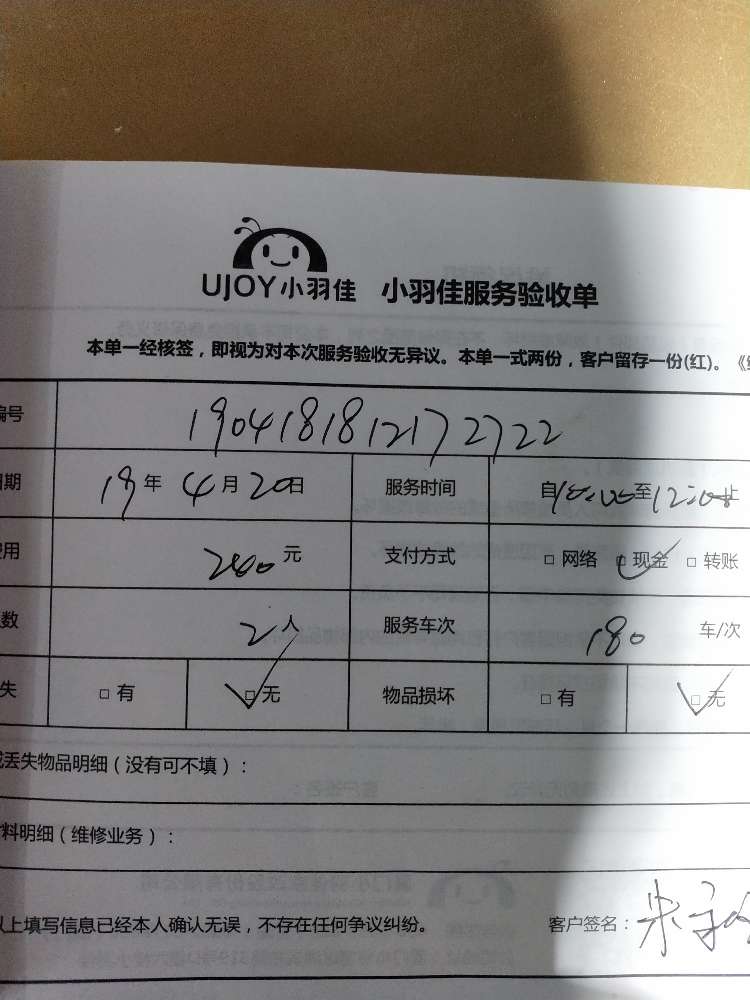 UJOY小羽佳 小羽佳服务验收单
本单一经核签，即视为对本次服务验收无异议。本单一式两份，客户留存一份(红)。《
编号 190418181217 2722
日期 19年 4月 20日 服务时间 自 至 止
费用 240元 支付方式 □ 网络 □ 现金 □ 转账
数 2人 服务车次 180 车/次
失 □ 有 □ 无 物品损坏 □ 有 □ 无
或丢失物品明细（没有可不填）：
材料明细（维修业务）：
以上填写信息已经本人确认无误，不存在任何争议纠纷。 客户签名：